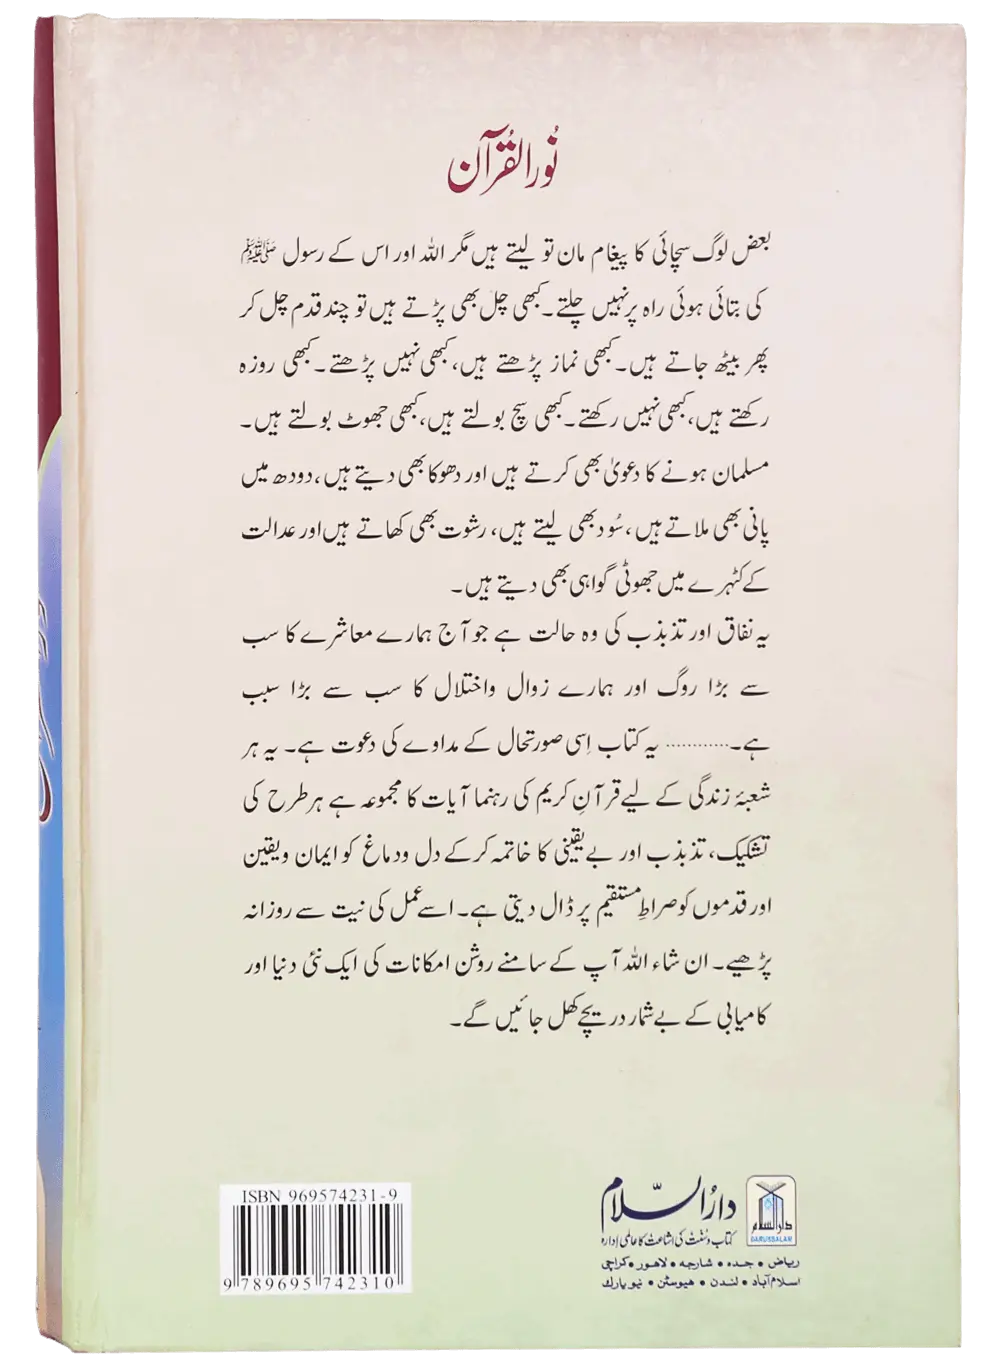 نُورالقُرآن
بعض لوگ سچائی کا پیغام مان تو لیتے ہیں مگر اللہ اور اس کے رسول ﷺ
کی بتائی ہوئی راہ پر نہیں چلتے۔ کبھی چل بھی پڑتے ہیں تو چند قدم چل کر
پھر بیٹھ جاتے ہیں۔ کبھی نماز پڑھتے ہیں، کبھی نہیں پڑھتے۔ کبھی روزہ
رکھتے ہیں، کبھی نہیں رکھتے۔ کبھی سچ بولتے ہیں، کبھی جھوٹ بولتے ہیں۔
مسلمان ہونے کا دعویٰ بھی کرتے ہیں اور دھوکا بھی دیتے ہیں، دودھ میں
پانی بھی ملاتے ہیں، سُود بھی لیتے ہیں، رشوت بھی کھاتے ہیں اور عدالت
کے کٹہرے میں جھوٹی گواہی بھی دیتے ہیں۔
یہ نفاق اور تذبذب کی وہ حالت ہے جو آج ہمارے معاشرے کا سب
سے بڑا روگ اور ہمارے زوال واختلال کا سب سے بڑا سبب
ہے۔............ یہ کتاب اِسی صورتحال کے مداوے کی دعوت ہے۔ یہ ہر
شعبۂ زندگی کے لیے قرآنِ کریم کی رہنما آیات کا مجموعہ ہے ہر طرح کی
تشکیک، تذبذب اور بے یقینی کا خاتمہ کرکے دل ودماغ کو ایمان ویقین
اور قدموں کو صراطِ مستقیم پر ڈال دیتی ہے۔ اسے عمل کی نیت سے روزانہ
پڑھیے۔ ان شاء اللہ آپ کے سامنے روشن امکانات کی ایک نئی دنیا اور
کامیابی کے بے شمار دریچے کھل جائیں گے۔
ISBN 969574231-9
9 789695 742310
دارُالسّلام
دارالسلام
DARUSSALAM
کتاب وسُنّت کی اشاعت کا عالمی اِدارہ
ریاض • جدہ • شارجہ • لاہور • کراچی
اسلام آباد • لندن • ہیوسٹن • نیو یارک